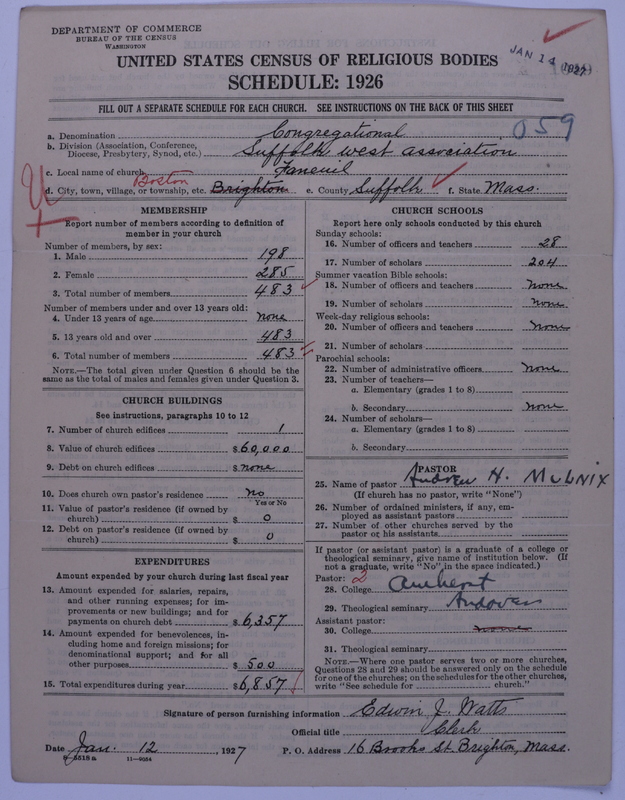 DEPARTMENT OF COMMERCE
BUREAU OF THE CENSUS
WASHINGTON
JAN 14 1927
UNITED STATES CENSUS OF RELIGIOUS BODIES
SCHEDULE: 1926
FILL OUT A SEPARATE SCHEDULE FOR EACH CHURCH. SEE INSTRUCTIONS ON THE BACK OF THIS SHEET
059
a. Denomination Congregational
b. Division (Association, Conference, Diocese, Presbytery, Synod, etc.) Suffolk west association
c. Local name of church Faneuil
d. City, town, village, or township, etc. Boston Brighton e. County Suffolk f. State Mass.
MEMBERSHIP
Report number of members according to definition of
member in your church
Number of members, by sex:
1. Male 198
2. Female 285
3. Total number of members 483
Number of members under and over 13 years old:
4. Under 13 years of age none
5. 13 years old and over 483
6. Total number of members 483
NOTE.—The total given under Question 6 should be
same as the total of males and females given under Question 3.
CHURCH BUILDINGS
See instructions, paragraphs 10 to 12
7. Number of church edifices 1
8. Value of church edifices $60,000
9. Debt on church edifices $none
10. Does church own pastor's residence no
Yes or No
11. Value of pastor's residence (if owned by
church) $ 0
12. Debt on pastor's residence (if owned by
church) $ 0
EXPENDITURES
Amount expended by your church during last fiscal year
13. Amount expended for salaries, repairs,
and other running expenses; for im-
provements or new buildings; and for
payments on church debt $6,357
14. Amount expended for benevolences, in-
cluding home and foreign missions; for
denominational support; and for all
other purposes $ 500
15. Total expenditures during year $6,857
CHURCH SCHOOLS
Report here only schools conducted by this church
Sunday schools:
16. Number of officers and teachers 28
17. Number of scholars 204
Summer vacation Bible schools:
18. Number of officers and teachers none
19. Number of scholars none
Week-day religious schools:
20. Number of officers and teachers none
21. Number of scholars
Parochial schools:
22. Number of administrative officers none
23. Number of teachers—
a. Elementary (grades 1 to 8)
b. Secondary none
24. Number of scholars—
a. Elementary (grades 1 to 8)
b. Secondary
PASTOR
25. Name of pastor Andrew H.
(If church has no pastor, write "None")
26. Number of ordained ministers, if any, em-
ployed as assistant pastors
27. Number of other churches served by the
pastor or his assistants
If pastor (or assistant pastor) is a graduate of a college or
theological seminary, give name of institution below. (If
not a graduate, write "No" in the space indicated.)
Pastor: 2
28. College Amherst
29. Theological seminary Andover
Assistant pastor:
30. College none
31. Theological seminary
NOTE.—Where one pastor serves two or more churches,
Questions 28 and 29 should be answered only on the schedule
for one of the churches; on the schedules for the other churches,
write "See schedule for church."
Signature of person furnishing information Edwin J. Watts
Official title Clerk
Date Jan. 12, 1927 P. O. Address 16 Brooks St. Brighton, Mass.
11—9054